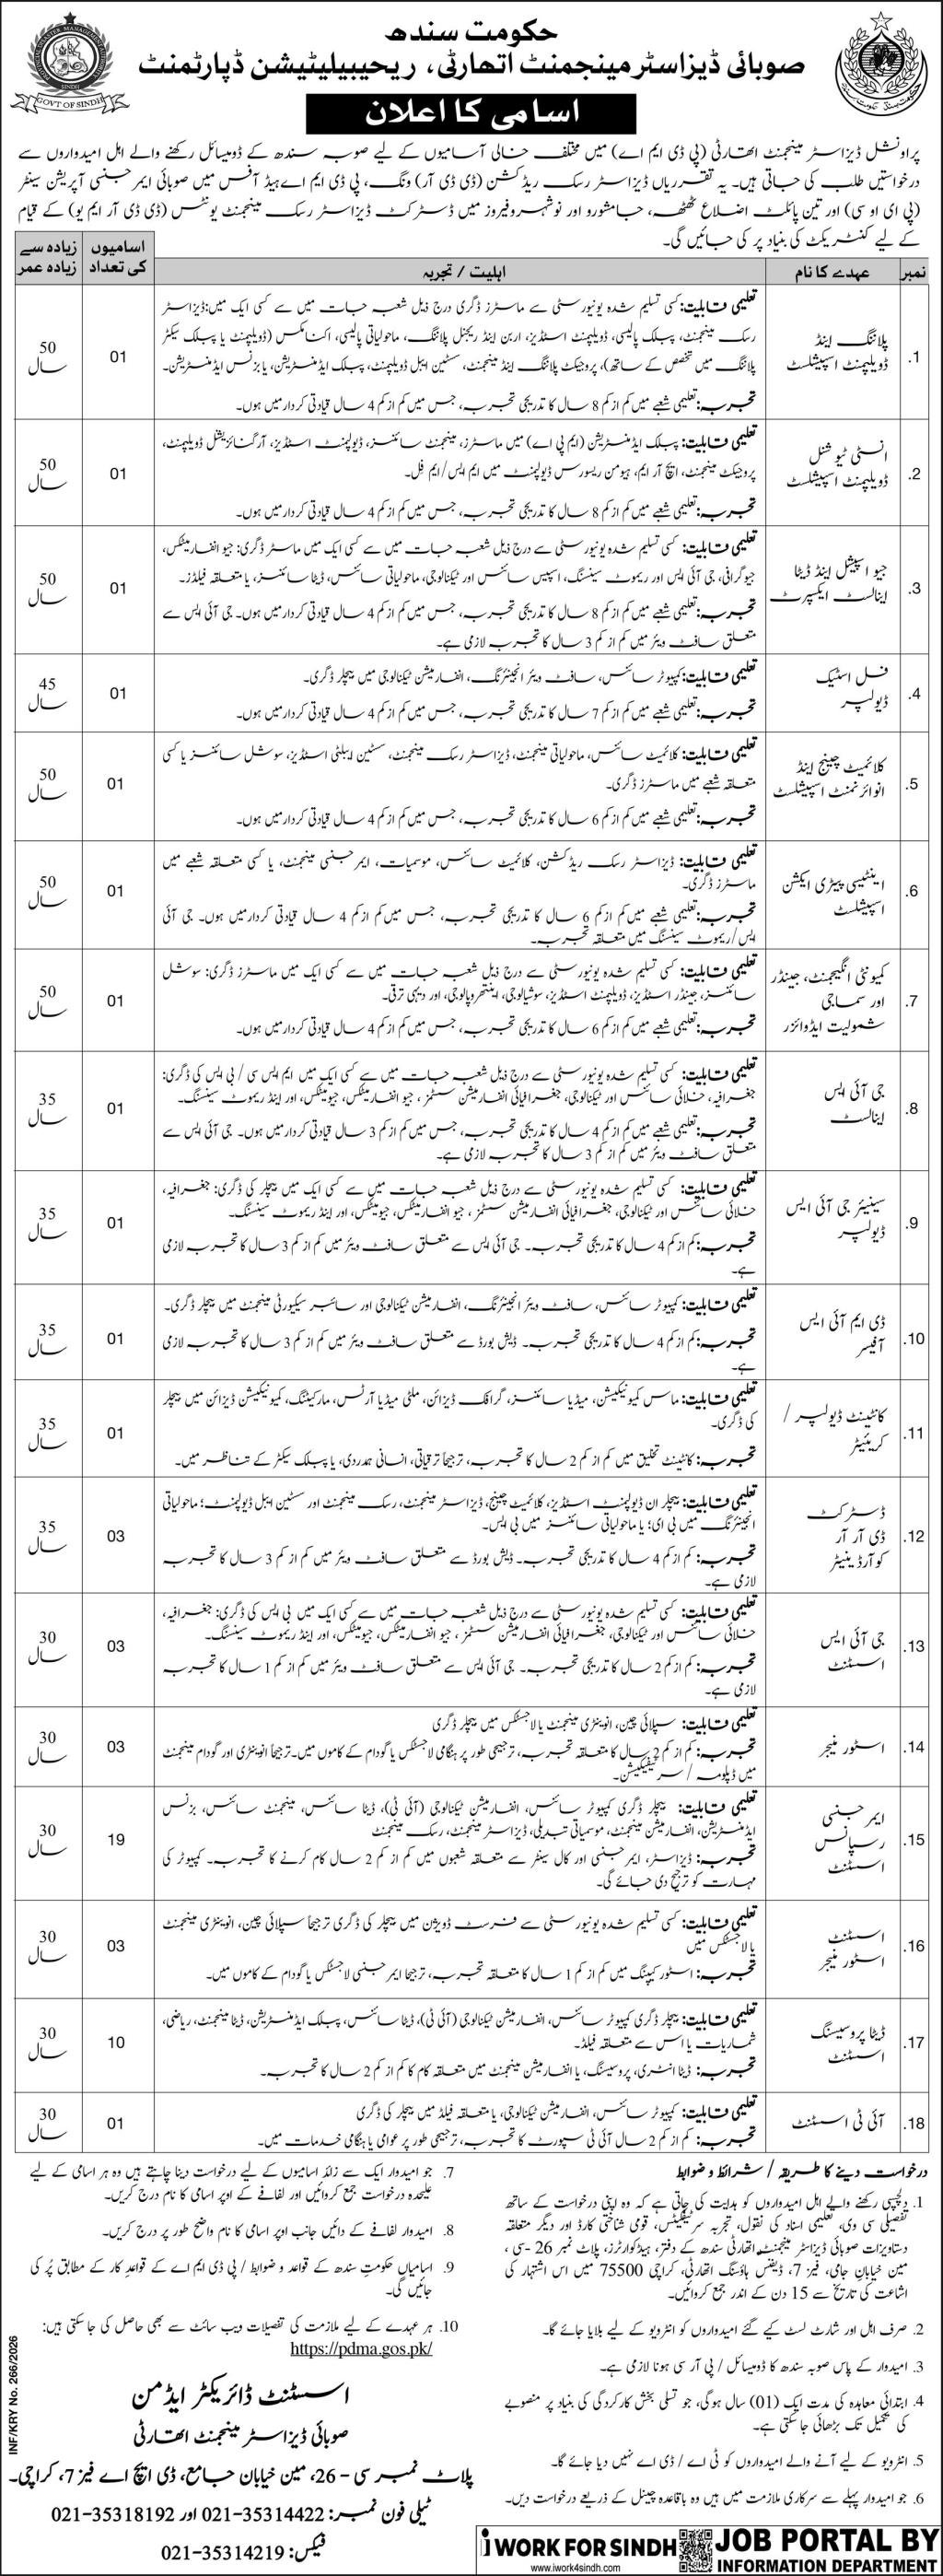 حکومت سندھ
صوبائی ڈیزاسٹر مینجمنٹ اتھارٹی، ریحیبیلیٹیشن ڈپارٹمنٹ
GOVT OF SINDH
اسامی کا اعلان
پراونشل ڈیزاسٹر مینجمنٹ اتھارٹی (پی ڈی ایم اے) میں مختلف خالی آسامیوں کے لیے صوبہ سندھ کے ڈومیسائل رکھنے والے اہل امیدواروں سے
درخواستیں طلب کی جاتی ہیں۔ یہ تقرریاں ڈیزاسٹر رسک ریڈکشن (ڈی ڈی آر) ونگ، پی ڈی ایم اے ہیڈ آفس میں صوبائی ایمرجنسی آپریشن سینٹر
(پی ای او سی) اور تین پائلٹ اضلاع ٹھٹھہ، جامشورو اور نوشہروفیروز میں ڈسٹرکٹ ڈیزاسٹر رسک مینجمنٹ یونٹس (ڈی ڈی آر ایم یو) کے قیام
کے لیے کنٹریکٹ کی بنیاد پر کی جائیں گی۔
نمبر عہدے کا نام اہلیت / تجربہ اسامیوں کی تعداد زیادہ سے زیادہ عمر
1. پلاننگ اینڈ ڈویلپمنٹ اسپیشلسٹ 01 50 سال
تعلیمی قابلیت: کسی تسلیم شدہ یونیورسٹی سے ماسٹرز ڈگری درج ذیل شعبہ جات میں سے کسی ایک میں: ڈیزاسٹر
رسک مینجمنٹ، پبلک پالیسی، ڈویلپمنٹ اسٹڈیز، اربن اینڈ ریجنل پلاننگ، ماحولیاتی پالیسی، اکنامکس (ڈویلپمنٹ یا پبلک سیکٹر
پلاننگ میں تخصص کے ساتھ)، پروجیکٹ پلاننگ اینڈ مینجمنٹ، سسٹین ایبل ڈویلپمنٹ، پبلک ایڈمنسٹریشن، یا بزنس ایڈمنسٹریشن۔
تجربہ: تعلیمی شعبے میں کم از کم 8 سال کا تدریجی تجربہ، جس میں کم از کم 4 سال قیادتی کردار میں ہوں۔
2. انسٹی ٹیوشنل ڈویلپمنٹ اسپیشلسٹ 01 50 سال
تعلیمی قابلیت: پبلک ایڈمنسٹریشن (ایم پی اے) میں ماسٹرز، مینجمنٹ سائنسز، ڈیولپمنٹ اسٹڈیز، آرگنائزیشنل ڈویلپمنٹ،
پروجیکٹ مینجمنٹ، ایچ آر ایم، ہیومن ریسورس ڈیولپمنٹ میں ایم ایس/ایم فِل۔
تجربہ: تعلیمی شعبے میں کم از کم 8 سال کا تدریجی تجربہ، جس میں کم از کم 4 سال قیادتی کردار میں ہوں۔
3. جیو اسپیشل اینڈ ڈیٹا اینالسٹ ایکسپرٹ 01 50 سال
تعلیمی قابلیت: کسی تسلیم شدہ یونیورسٹی سے درج ذیل شعبہ جات میں سے کسی ایک میں ماسٹر ڈگری: جیو انفارمیٹکس،
جیوگرافی، جی آئی ایس اور ریموٹ سینسنگ، اسپیس سائنس اور ٹیکنالوجی، ماحولیاتی سائنس، ڈیٹا سائنسز، یا متعلقہ فیلڈز۔
تجربہ: تعلیمی شعبے میں کم از کم 8 سال کا تدریجی تجربہ، جس میں کم از کم 4 سال قیادتی کردار میں ہوں۔ جی آئی ایس سے
متعلق سافٹ ویئر میں کم از کم 3 سال کا تجربہ لازمی ہے۔
4. فل اسٹیک ڈیولپر 01 45 سال
تعلیمی قابلیت: کمپیوٹر سائنس، سافٹ ویئر انجینئرنگ، انفارمیشن ٹیکنالوجی میں بیچلر ڈگری۔
تجربہ: تعلیمی شعبے میں کم از کم 7 سال کا تدریجی تجربہ، جس میں کم از کم 4 سال قیادتی کردار میں ہوں۔
5. کلائمیٹ چینج اینڈ انوائرنمنٹ اسپیشلسٹ 01 50 سال
تعلیمی قابلیت: کلائمیٹ سائنس، ماحولیاتی مینجمنٹ، ڈیزاسٹر رسک مینجمنٹ، سسٹین ایبلٹی اسٹڈیز، سوشل سائنسز یا کسی
متعلقہ شعبے میں ماسٹرز ڈگری۔
تجربہ: تعلیمی شعبے میں کم از کم 6 سال کا تدریجی تجربہ، جس میں کم از کم 4 سال قیادتی کردار میں ہوں۔
6. اینٹیسی پیٹری ایکشن اسپیشلسٹ 01 50 سال
تعلیمی قابلیت: ڈیزاسٹر رسک ریڈکشن، کلائمیٹ سائنس، موسمیات، ایمرجنسی مینجمنٹ، یا کسی متعلقہ شعبے میں
ماسٹرز ڈگری۔
تجربہ: تعلیمی شعبے میں کم از کم 6 سال کا تدریجی تجربہ، جس میں کم از کم 4 سال قیادتی کردار میں ہوں۔ جی آئی
ایس/ریموٹ سینسنگ میں متعلقہ تجربہ۔
7. کمیونٹی انگیجمنٹ، جینڈر اور سماجی شمولیت ایڈوائزر 01 50 سال
تعلیمی قابلیت: کسی تسلیم شدہ یونیورسٹی سے درج ذیل شعبہ جات میں سے کسی ایک میں ماسٹرز ڈگری: سوشل
سائنسز، جینڈر اسٹڈیز، ڈویلپمنٹ اسٹڈیز، سوشیالوجی، اینتھروپالوجی، اور دیہی ترقی۔
تجربہ: تعلیمی شعبے میں کم از کم 6 سال کا تدریجی تجربہ، جس میں کم از کم 4 سال قیادتی کردار میں ہوں۔
8. جی آئی ایس اینالسٹ 01 35 سال
تعلیمی قابلیت: کسی تسلیم شدہ یونیورسٹی سے درج ذیل شعبہ جات میں سے کسی ایک میں ایم ایس سی / بی ایس کی ڈگری:
جغرافیہ، خلائی سائنس اور ٹیکنالوجی، جغرافیائی انفارمیشن سسٹمز، جیو انفارمیٹکس، جیومیٹکس، اور اینڈ ریموٹ سینسنگ۔
تجربہ: تعلیمی شعبے میں کم از کم 4 سال کا تدریجی تجربہ، جس میں کم از کم 3 سال قیادتی کردار میں ہوں۔ جی آئی ایس سے
متعلق سافٹ ویئر میں کم از کم 3 سال کا تجربہ لازمی ہے۔
9. سینیئر جی آئی ایس ڈیولپر 01 35 سال
تعلیمی قابلیت: کسی تسلیم شدہ یونیورسٹی سے درج ذیل شعبہ جات میں سے کسی ایک میں بیچلر کی ڈگری: جغرافیہ،
خلائی سائنس اور ٹیکنالوجی، جغرافیائی انفارمیشن سسٹمز، جیو انفارمیٹکس، جیومیٹکس، اور اینڈ ریموٹ سینسنگ۔
تجربہ: کم از کم 4 سال کا تدریجی تجربہ۔ جی آئی ایس سے متعلق سافٹ ویئر میں کم از کم 3 سال کا تجربہ لازمی
ہے۔
10. ڈی ایم آئی ایس آفیسر 01 35 سال
تعلیمی قابلیت: کمپیوٹر سائنس، سافٹ ویئر انجینئرنگ، انفارمیشن ٹیکنالوجی اور سائبر سیکیورٹی مینجمنٹ میں بیچلر ڈگری۔
تجربہ: کم از کم 4 سال کا تدریجی تجربہ۔ ڈیش بورڈ سے متعلق سافٹ ویئر میں کم از کم 3 سال کا تجربہ لازمی
ہے۔
11. کانٹینٹ ڈیولپر / کریئیٹر 01 35 سال
تعلیمی قابلیت: ماس کمیونیکیشن، میڈیا سائنسز، گرافک ڈیزائن، ملٹی میڈیا آرٹس، مارکیٹنگ، کمیونیکیشن ڈیزائن میں بیچلر
کی ڈگری۔
تجربہ: کانٹینٹ تخلیق میں کم از کم 2 سال کا تجربہ، ترجیحاً ترقیاتی، انسانی ہمدردی، یا پبلک سیکٹر کے تناظر میں۔
12. ڈسٹرکٹ ڈی آر آر کوآرڈینیٹر 03 35 سال
تعلیمی قابلیت: بیچلر ان ڈیولپمنٹ اسٹڈیز، کلائمیٹ چینج، ڈیزاسٹر مینجمنٹ، رسک مینجمنٹ اور سسٹین ایبل ڈیولپمنٹ؛ ماحولیاتی
انجینئرنگ میں بی ای؛ یا ماحولیاتی سائنسز میں بی ایس۔
تجربہ: کم از کم 4 سال کا تدریجی تجربہ۔ ڈیش بورڈ سے متعلق سافٹ ویئر میں کم از کم 3 سال کا تجربہ
لازمی ہے۔
13. جی آئی ایس اسسٹنٹ 03 30 سال
تعلیمی قابلیت: کسی تسلیم شدہ یونیورسٹی سے درج ذیل شعبہ جات میں سے کسی ایک میں بی ایس کی ڈگری: جغرافیہ،
خلائی سائنس اور ٹیکنالوجی، جغرافیائی انفارمیشن سسٹمز، جیو انفارمیٹکس، جیومیٹکس، اور اینڈ ریموٹ سینسنگ۔
تجربہ: کم از کم 2 سال کا تدریجی تجربہ۔ جی آئی ایس سے متعلق سافٹ ویئر میں کم از کم 1 سال کا تجربہ
لازمی ہے۔
14. اسٹور منیجر 03 30 سال
تعلیمی قابلیت: سپلائی چین، انوینٹری مینجمنٹ یا لاجسٹکس میں بیچلر ڈگری
تجربہ: کم از کم 2 سال کا متعلقہ تجربہ، ترجیحی طور پر ہنگامی لاجسٹکس یا گودام کے کاموں میں۔ ترجیحاً انوینٹری اور گودام مینجمنٹ
میں ڈپلومہ / سرٹیفکیشن۔
15. ایمرجنسی رسپانس اسسٹنٹ 19 30 سال
تعلیمی قابلیت: بیچلر ڈگری کمپیوٹر سائنس، انفارمیشن ٹیکنالوجی (آئی ٹی)، ڈیٹا سائنس، مینجمنٹ سائنس، بزنس
ایڈمنسٹریشن، انفارمیشن مینجمنٹ، موسمیاتی تبدیلی، ڈیزاسٹر مینجمنٹ، رسک مینجمنٹ
تجربہ: ڈیزاسٹر، ایمرجنسی اور کال سینٹر سے متعلقہ شعبوں میں کم از کم 2 سال کام کرنے کا تجربہ۔ کمپیوٹر کی
مہارت کو ترجیح دی جائے گی۔
16. اسسٹنٹ اسٹور منیجر 03 30 سال
تعلیمی قابلیت: کسی تسلیم شدہ یونیورسٹی سے فرسٹ ڈویژن میں بیچلر کی ڈگری ترجیحاً سپلائی چین، انوینٹری مینجمنٹ
یا لاجسٹکس میں
تجربہ: اسٹور کیپنگ میں کم از کم 1 سال کا متعلقہ تجربہ، ترجیحاً ایمرجنسی لاجسٹکس یا گودام کے کاموں میں۔
17. ڈیٹا پروسیسنگ اسسٹنٹ 10 30 سال
تعلیمی قابلیت: بیچلر ڈگری کمپیوٹر سائنس، انفارمیشن ٹیکنالوجی (آئی ٹی)، ڈیٹا سائنس، پبلک ایڈمنسٹریشن، ڈیٹا مینجمنٹ، ریاضی،
شماریات یا اس سے متعلقہ فیلڈ۔
تجربہ: ڈیٹا انٹری، پروسیسنگ، یا انفارمیشن مینجمنٹ میں متعلقہ کام کا کم از کم 2 سال کا تجربہ۔
18. آئی ٹی اسسٹنٹ 01 30 سال
تعلیمی قابلیت: کمپیوٹر سائنس، انفارمیشن ٹیکنالوجی، یا متعلقہ فیلڈ میں بیچلر کی ڈگری
تجربہ: کم از کم 2 سال آئی ٹی سپورٹ کا تجربہ، ترجیحی طور پر عوامی یا ہنگامی خدمات میں۔
درخواست دینے کا طریقہ / شرائط و ضوابط
1. دلچسپی رکھنے والے اہل امیدواروں کو ہدایت کی جاتی ہے کہ وہ اپنی درخواست کے ساتھ
تفصیلی سی وی، تعلیمی اسناد کی نقول، تجربہ سرٹیفکیٹس، قومی شناختی کارڈ اور دیگر متعلقہ
دستاویزات صوبائی ڈیزاسٹر مینجمنٹ اتھارٹی سندھ کے دفتر، ہیڈکوارٹرز، پلاٹ نمبر 26-سی،
مین خیابانِ جامی، فیز 7، ڈیفنس ہاؤسنگ اتھارٹی، کراچی 75500 میں اس اشتہار کی
اشاعت کی تاریخ سے 15 دن کے اندر جمع کروائیں۔
2. صرف اہل اور شارٹ لسٹ کیے گئے امیدواروں کو انٹرویو کے لیے بلایا جائے گا۔
3. امیدوار کے پاس صوبہ سندھ کا ڈومیسائل / پی آر سی ہونا لازمی ہے۔
4. ابتدائی معاہدہ کی مدت ایک (01) سال ہوگی، جو تسلی بخش کارکردگی کی بنیاد پر منصوبے
کی تکمیل تک بڑھائی جاسکتی ہے۔
5. انٹرویو کے لیے آنے والے امیدواروں کو ٹی اے / ڈی اے نہیں دیا جائے گا۔
6. جو امیدوار پہلے سے سرکاری ملازمت میں ہیں وہ باقاعدہ چینل کے ذریعے درخواست دیں۔
7. جو امیدوار ایک سے زائد اسامیوں کے لیے درخواست دینا چاہتے ہیں وہ ہر اسامی کے لیے
علیحدہ درخواست جمع کروائیں اور لفافے کے اوپر اسامی کا نام درج کریں۔
8. امیدوار لفافے کے دائیں جانب اوپر اسامی کا نام واضح طور پر درج کریں۔
9. اسامیاں حکومتِ سندھ کے قواعد و ضوابط / پی ڈی ایم اے کے قواعدِ کار کے مطابق پُر کی
جائیں گی۔
10. ہر عہدے کے لیے ملازمت کی تفصیلات ویب سائٹ سے بھی حاصل کی جاسکتی ہیں:
https://pdma.gos.pk/
اسسٹنٹ ڈائریکٹر ایڈمن
صوبائی ڈیزاسٹر مینجمنٹ اتھارٹی
پلاٹ نمبر سی - 26، مین خیابان جامع، ڈی ایچ اے فیز 7، کراچی۔
ٹیلی فون نمبر: 021-35314422 اور 021-35318192
فیکس: 021-35314219
INF/KRY No. 266/2026
i WORK FOR SINDH
www.iwork4sindh.com
JOB PORTAL BY
INFORMATION DEPARTMENT